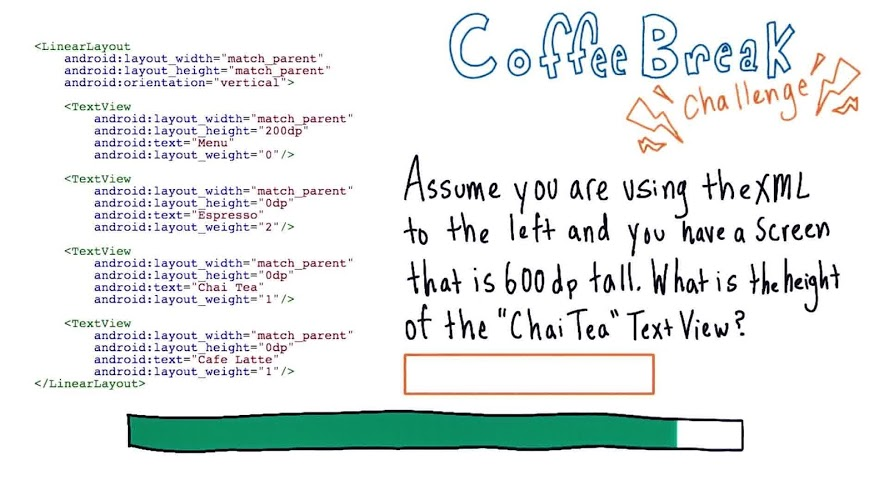 <LinearLayout
android:layout_width="match_parent"
android:layout_height="match_parent"
android:orientation="vertical">
<TextView
android:layout_width="match_parent"
android:layout_height="200dp"
android:text="Menu"
android:layout_weight="0"/>
<TextView
android:layout_width="match_parent"
android:layout_height="0dp"
android:text="Espresso"
android:layout_weight="2"/>
<TextView
android:layout_width="match_parent"
android:layout_height="0dp"
android:text="Chai Tea"
android:layout_weight="1"/>
<TextView
android:layout_width="match_parent"
android:layout_height="0dp"
android:text="Cafe Latte"
android:layout_weight="1"/>
</LinearLayout>
Coffee Break
Challenge
Assume you are using the XML
to the left and you have a screen
that is 600dp tall. What is the height
of the "Chai Tea" Text View?